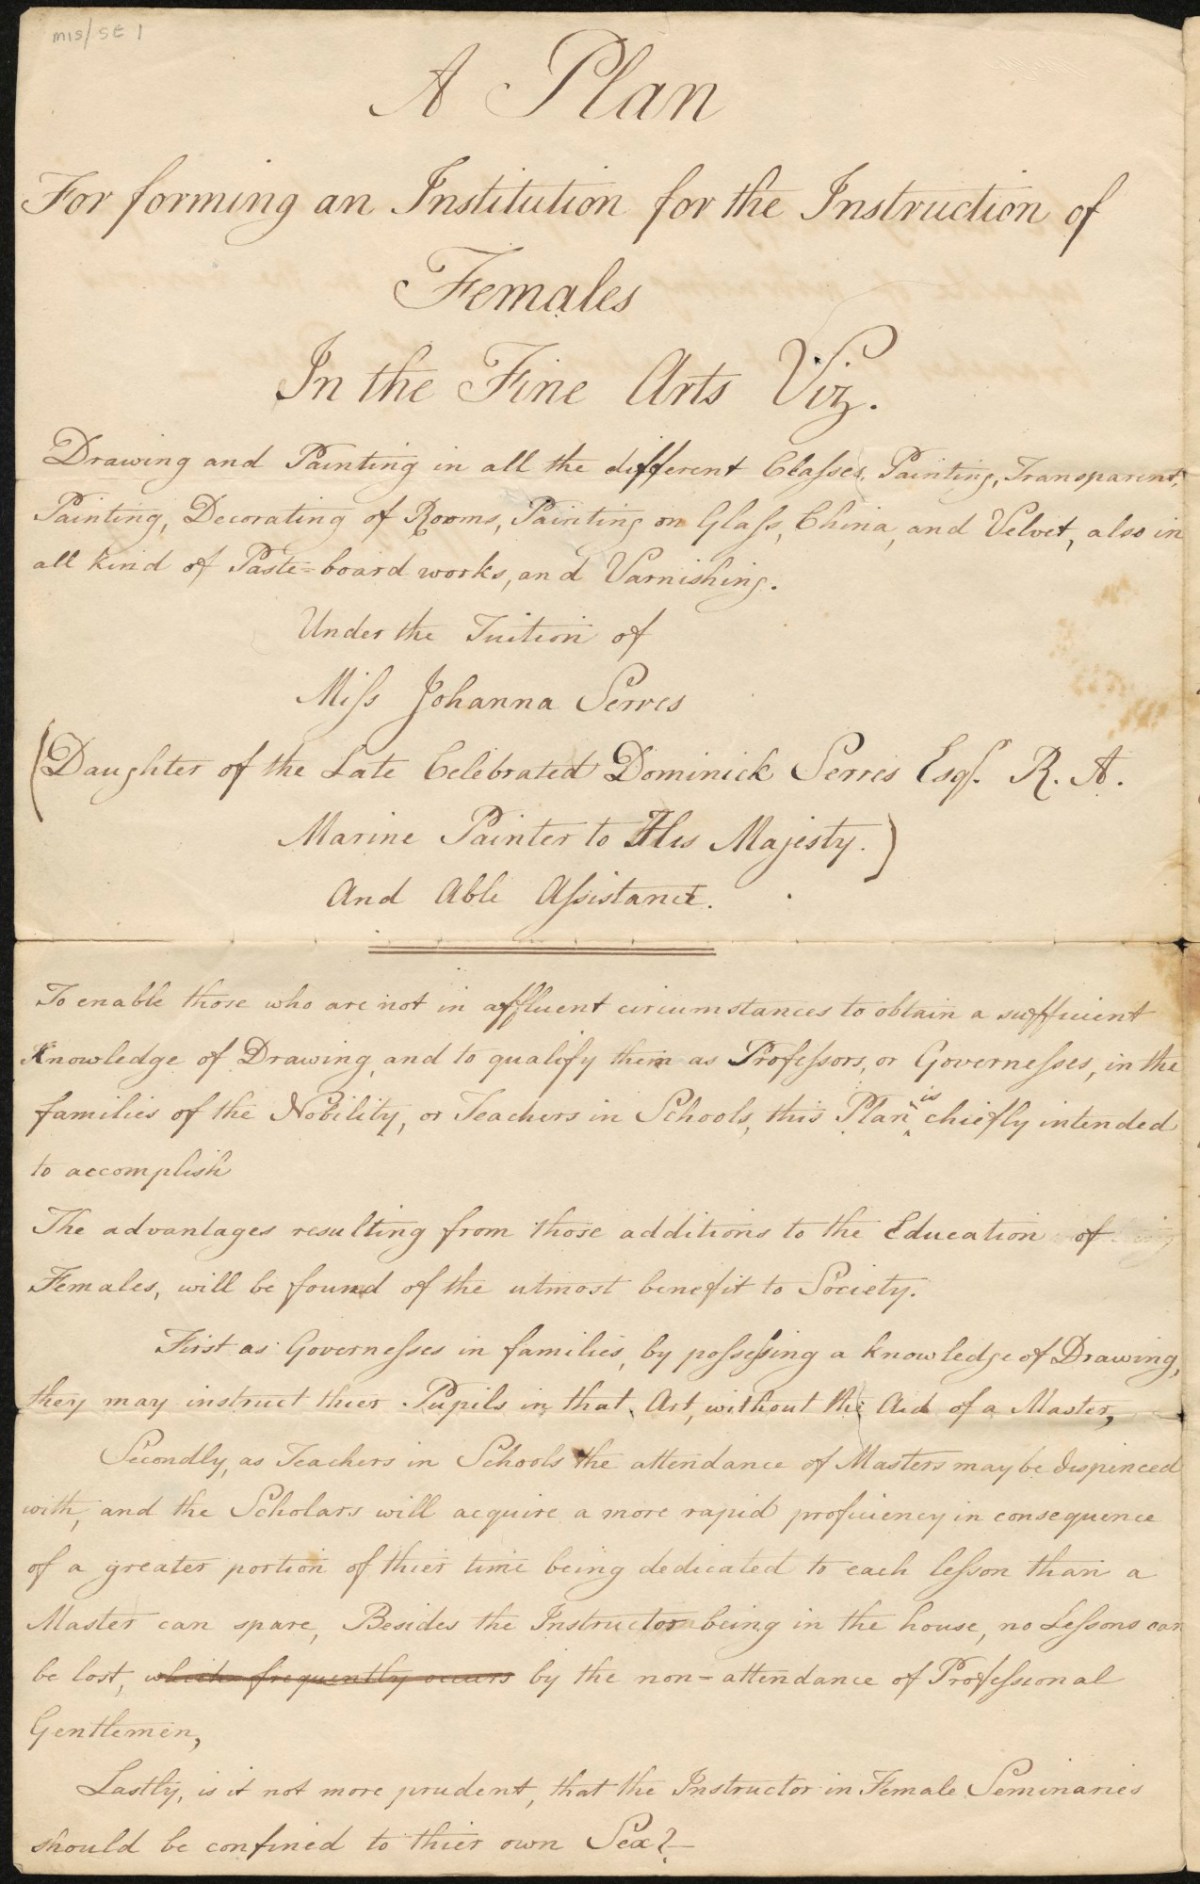 MIS/SE 1
A Plan
For forming an Institution for the Instruction of
Females
In the Fine Arts Viz.
Drawing and Painting in all the different Classes, Painting, Transparent,
Painting, Decorating of Rooms, Painting on Glass, China, and Velvet, also in
all kind of Paste=board works, and Varnishing.
Under the Tuition of
Miss Johanna Serres
(Daughter of the Late Celebrated Dominick Serres Esqr. R. A.
Marine Painter to His Majesty.)
And Able Assistance.
To enable those who are not in affluent circumstances to obtain a sufficient
Knowledge of Drawing, and to qualify them as Professors, or Governesses, in the
families of the Nobility, or Teachers in Schools, this Plan is chiefly intended
to accomplish
The advantages resulting from those additions to the Education of
Females, will be found of the utmost benefit to Society.
First as Governesses in families, by possessing a knowledge of Drawing,
they may instruct thier Pupils in that Art, without the Aid of a Master,
Secondly, as Teachers in Schools the attendance of Masters may be dispenced
with, and the Scholars will acquire a more rapid proficiency in consequence
of a greater portion of thier time being dedicated to each lesson than a
Master can spare, Besides the Instructor being in the house, no Lessons can
be lost, which frequently occurs by the non-attendance of Professional
Gentlemen,
Lastly, is it not more prudent, that the Instructor in Female Seminaries
should be confined to thier own Sex?-